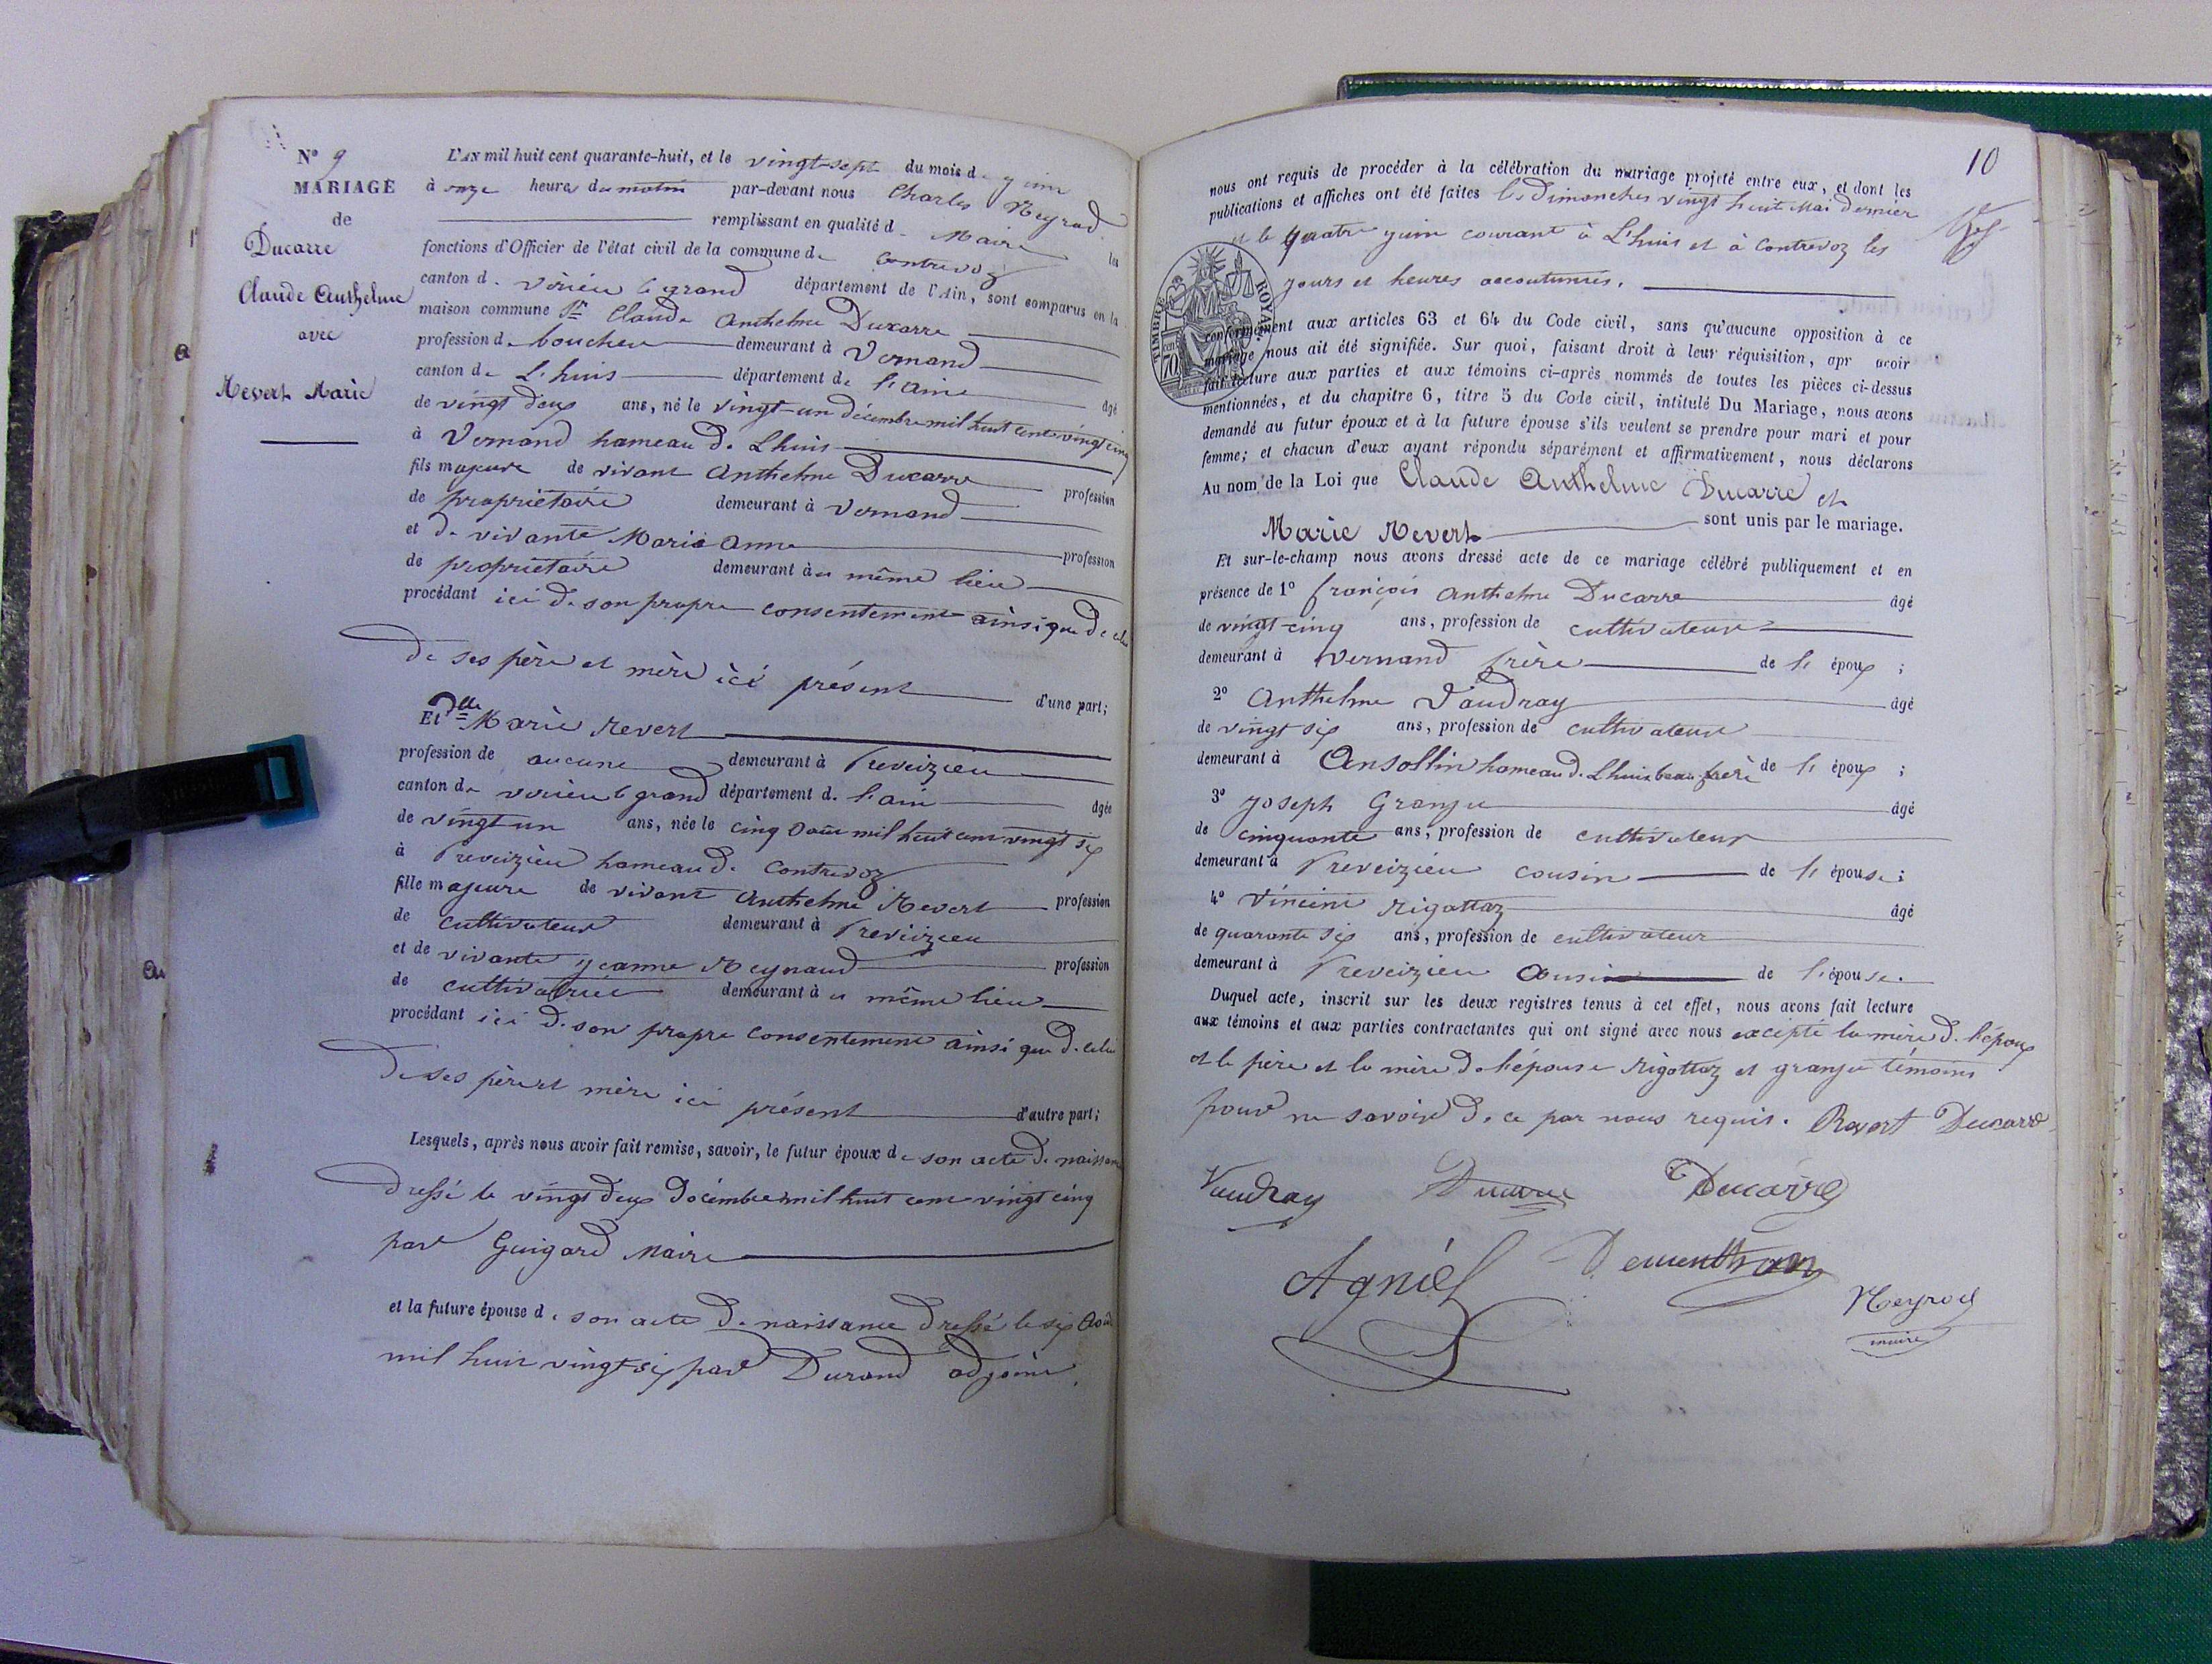 N° 9
MARIAGE
de
Ducarre
Claude Anthelme
avec
Revert Marie
L'AN mil huit cent quarante-huit, et le vingt-sept du mois de juin
à onze heures du matin par-devant nous Charles Neyrod
remplissant en qualité de Maire les
fonctions d'Officier de l'état civil de la commune de Contrevoz
canton de virieu le grand département de l'Ain, sont comparus en la
maison commune Sr Claude Anthelme Ducarre
profession de boucher demeurant à Vernand
canton de L'huis département de l'ain âgé
de vingt deux ans, né le vingt-un décembre mil huit cent vingt cinq
à Vernand hameau de Lhuis
fils majeure de vivant Anthelme Ducarre profession
de propriétaire demeurant à Vernand
et de vivante Marie Anne profession
de propriétaire demeurant à u même lieu
procédant ici de son propre consentement ainsi que de celui
de ses père et mère ici présent d'une part;
Et Dlle Marie Revert
profession de aucune demeurant à Preveizieu
canton de virieu le grand département de l'ain âgée
de vingt un ans, née le cinq Août mil huit cent vingt six
à Preveizieu hameau de Contrevoz
fille majeure de vivant Anthelme Revert profession
de cultivateur demeurant à Preveizieu
et de vivante jeanne Reynaud profession
de cultivatrice demeurant à u même lieu
procédant ici de son propre consentement ainsi que de celui
de ses père et mère ici présent d'autre part;
Lesquels, après nous avoir fait remise, savoir, le futur époux de son acte de naissance
dressé le vingt deux décembre mil huit cent vingt cinq
par Guigard Maire
et la future épouse de son acte de naissance dressé le six Août
mil huit vingt six par Durand adjoint.
10
nous ont requis de procéder à la célébration du mariage projeté entre eux, et dont les
publications et affiches ont été faites les Dimanches vingt huit Mai dernier
et le quatre juin courant à L'huis et à Contrevoz les
jours et heures accoutumés.
TIMBRE ROYAL
70
conformément aux articles 63 et 64 du Code civil, sans qu'aucune opposition à ce
mariage nous ait été signifiée. Sur quoi, faisant droit à leur réquisition, apr avoir
fait lecture aux parties et aux témoins ci-après nommés de toutes les pièces ci-dessus
mentionnées, et du chapitre 6, titre 5 du Code civil, intitulé Du Mariage, nous avons
demandé au futur époux et à la future épouse s'ils veulent se prendre pour mari et pour
femme; et chacun d'eux ayant répondu séparément et affirmativement, nous déclarons
Au nom de la Loi que Claude Anthelme Ducarre et
Marie Revert sont unis par le mariage.
Et sur-le-champ nous avons dressé acte de ce mariage célébré publiquement et en
présence de 1° françois Anthelme Ducarre âgé
de vingt-cinq ans, profession de cultivateur
demeurant à Vernand frère de l'époux;
2° Anthelme Vaudray âgé
de vingt six ans, profession de cultivateur
demeurant à Ansollin hameau de Lhuis beau-frère de l'époux;
3° joseph Granju âgé
de cinquante ans, profession de cultivateur
demeurant à Preveizieu cousin de l'épouse;
4° Vincent Rigottaz âgé
de quarante six ans, profession de cultivateur
demeurant à Preveizieu Cousin de l'épouse.
Duquel acte, inscrit sur les deux registres tenus à cet effet, nous avons fait lecture
aux témoins et aux parties contractantes qui ont signé avec nous excepté la mère de l'époux
et le père et la mère de l'épouse Rigottaz et granju témoins
pour ne savoir de ce par nous requis. Revert Ducarre
Vaudray Ducarre Ducarre
Agniel Dementhon
Neyrod
maire